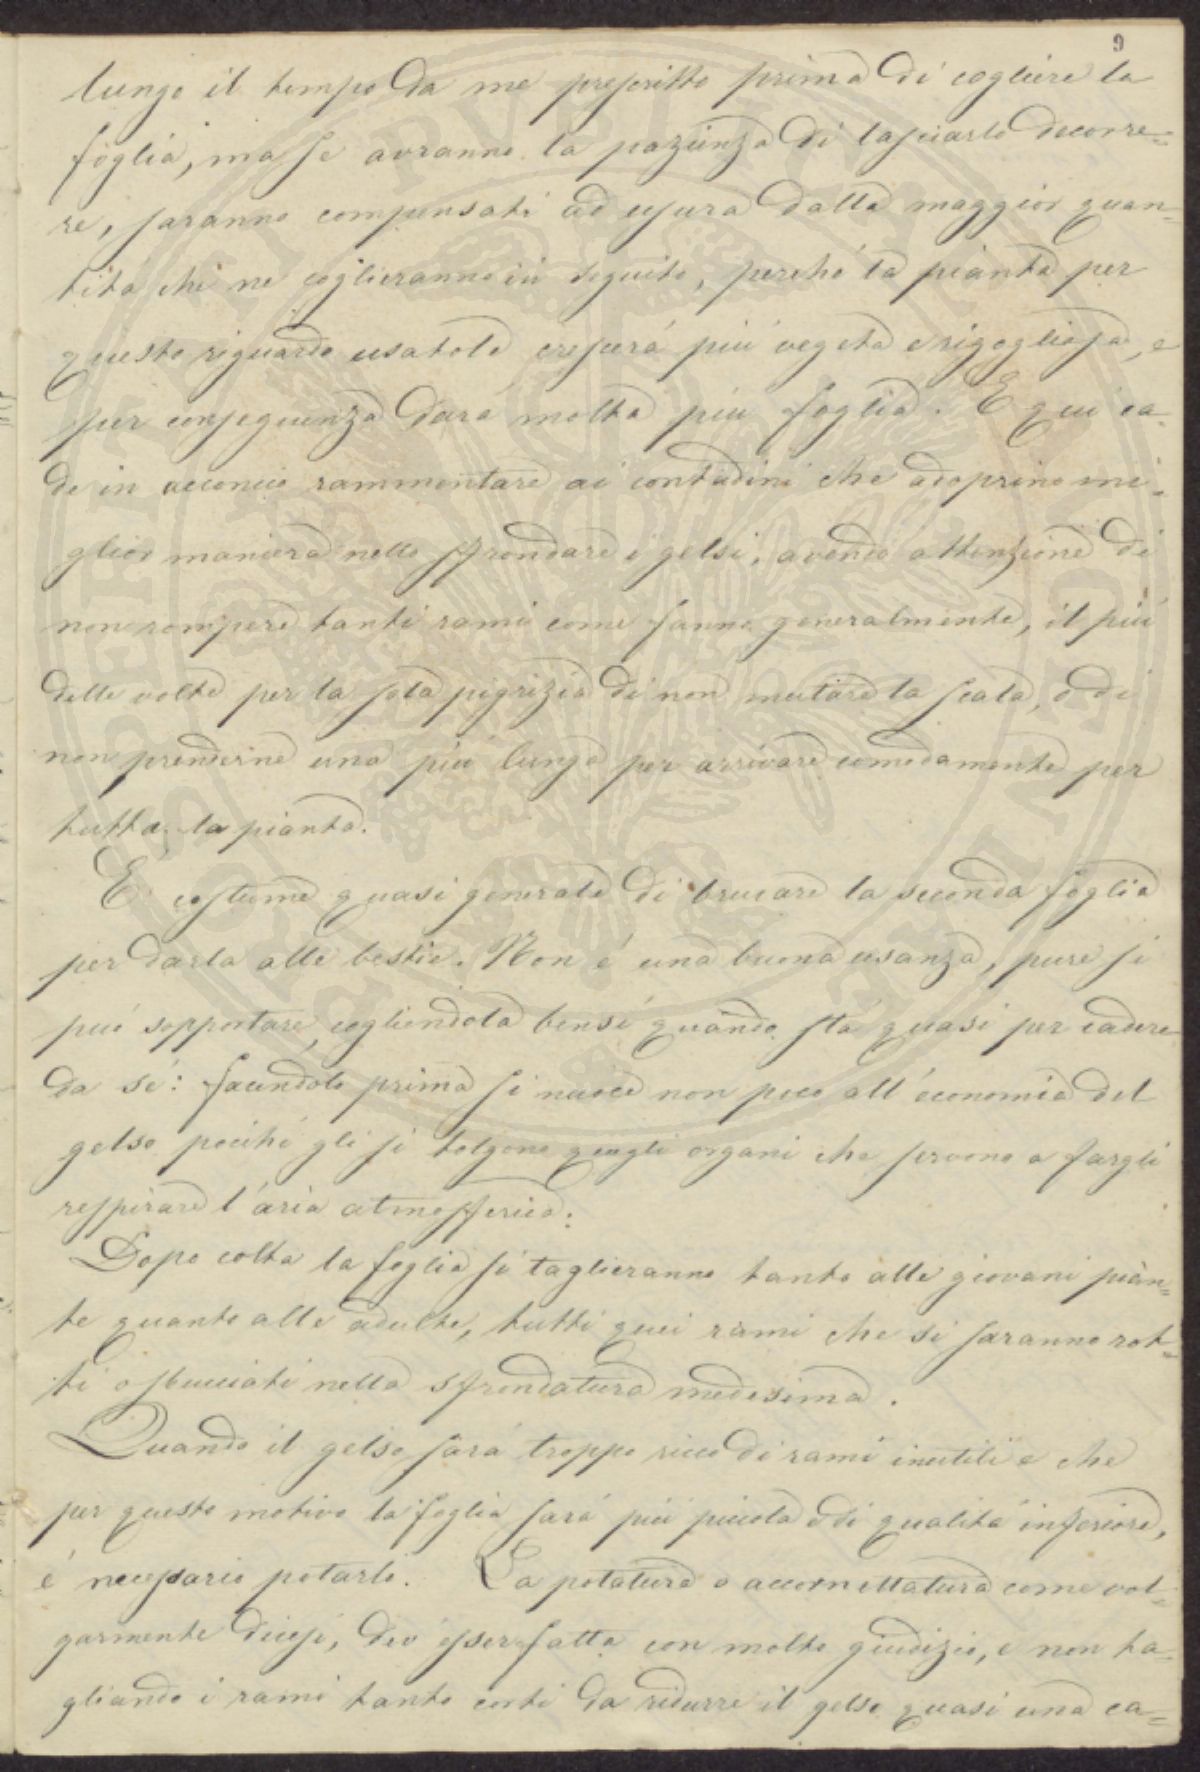 9
lungo il tempo da me prescritto prima di cogliere la
foglia, ma se avranno la pazienza di lasciarlo decorre=
re, saranno compensati ad usura dalla maggior quan=
titá che ne coglieranno in seguito, perché la pianta per
questo riguardo usatole crescerá piú vegeta e rigogliosa, e
per conseguenza dará molta piú foglia. E qui ca=
de in acconcio rammentare ai contadini che adoprino mi=
glior maniera nello sfrondare i gelsi, avendo attenzione di
non rompere tanti rami come fanno generalmente, il piú
delle volte per la sola pigrizia di non mutare la scala, o di
non prenderne una piú lunga per arrivare comodamente per
tutta la pianta.
É costume quasi generale di brucare la seconda foglia
per darla alle bestie. Non é una buona usanza, pure si
puó sopportare, cogliendola bensí quando stá quasi per cadere
da sé: facendolo prima si nuoce non poco all'economia del
gelso poiché gli si tolgono quegli organi che servono a fargli
respirare l'aria atmosferica.
Dopo colta la foglia si taglieranno tanto alle giovani pian=
te quanto alle adulte, tutti quei rami che si saranno rot=
ti o sbucciati nella sfrondatura medesima.
Quando il gelso sará troppo ricco di rami inutili e che
per questo motivo la foglia sará piú piccola e di qualitá inferiore,
é necessario potarlo. La potatura o accornettatura come vol=
garmente dicesi, dev'esser fatta con molto giudizio, e non ta=
gliando i rami tanto corti da ridurre il gelso quasi una ca=